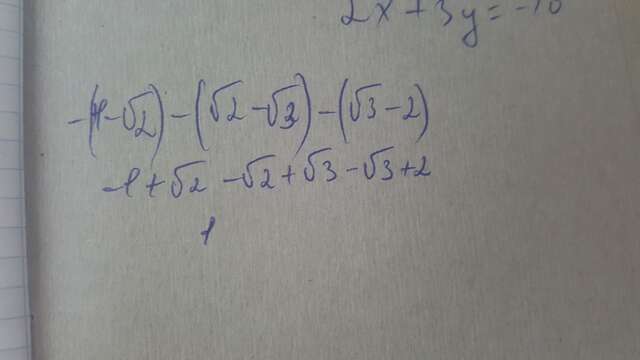 2x+3y=-10
-(1-√2)-(√2-√3)-(√3-2)
-1+√2-√2+√3-√3+2
1